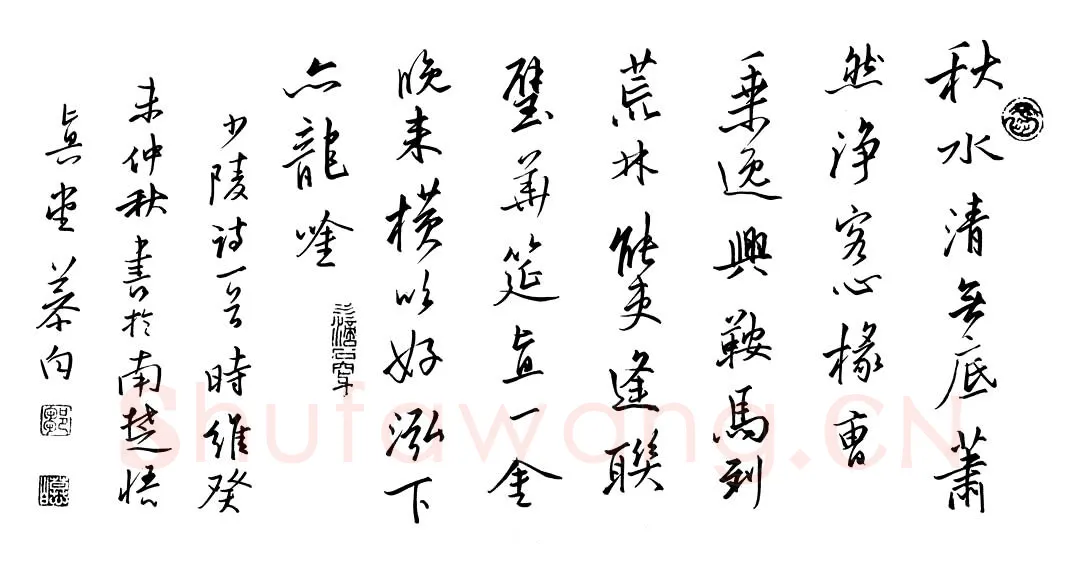 秋水清無底蕭
然淨客心掾曹
乘逸興鞍馬到
荒林能吏逢聯
璧華筵直一金
晚来橫吹好泓下
亦龍唫
少陵詩一首時維癸
未仲秋書於南楚悟
真堂慕向
Shufawang.CN